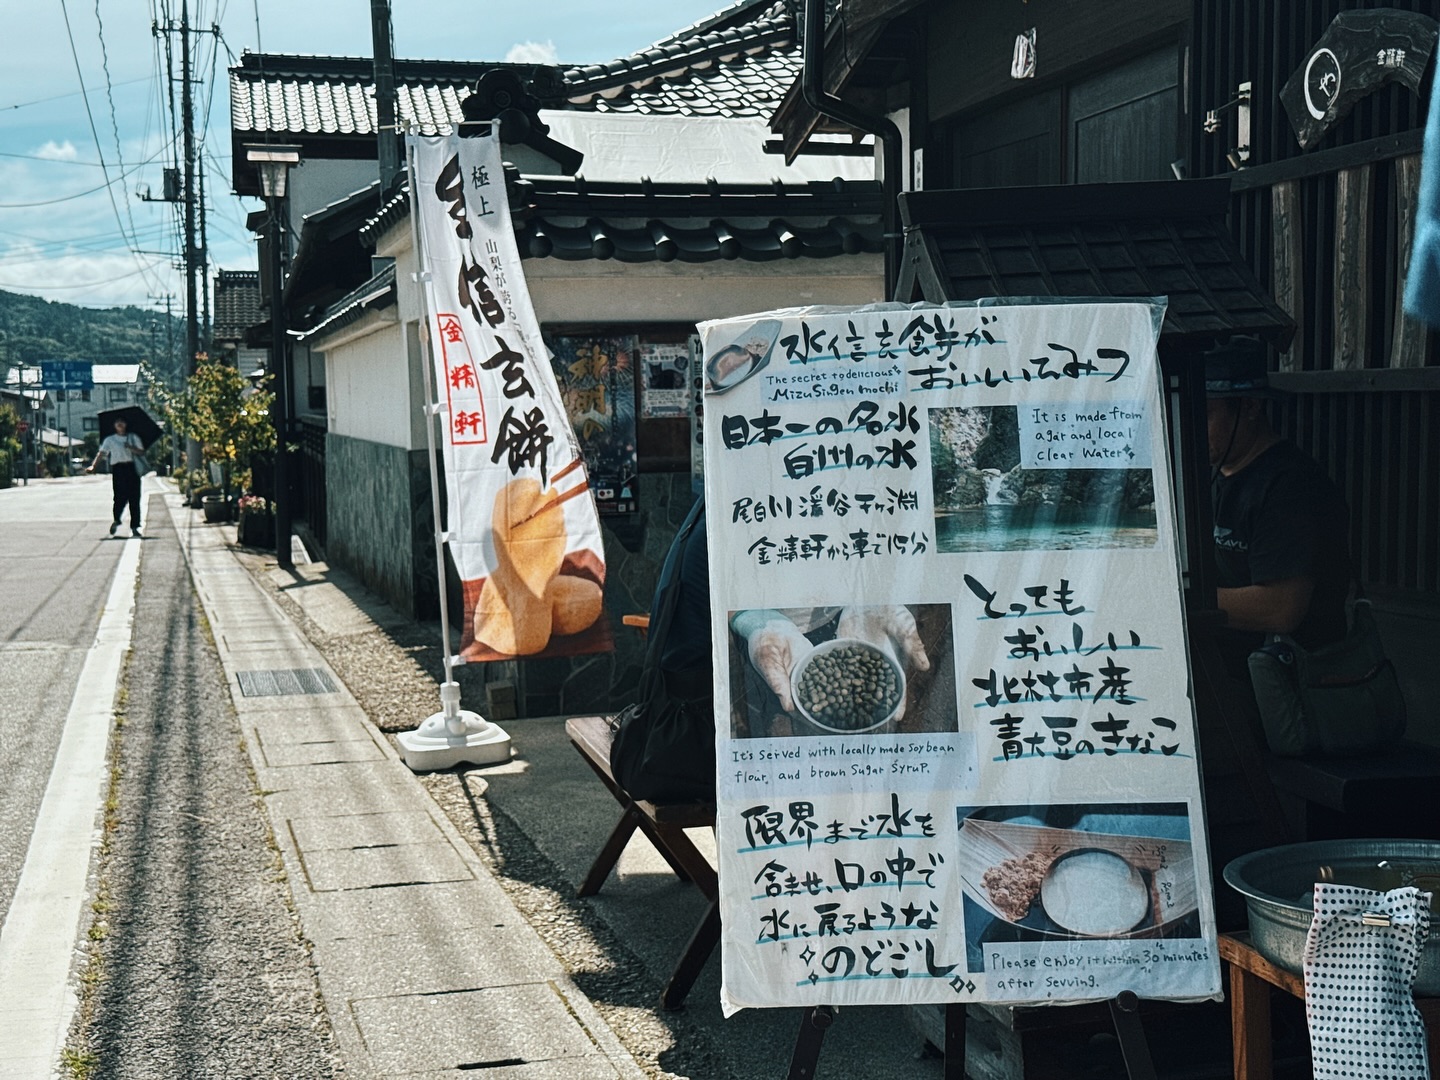 極上
生信玄餅
山梨が誇る
金精軒
金精軒
水信玄餅が
おいしいひみつ
The secret to delicious
MizuSingen mochi
日本一の名水
白州の水
尾白川渓谷千ヶ淵
金精軒から車で15分
It is made from
agar and local
clear Water
とっても
おいしい
北杜市産
青大豆のきなこ
It's Served with locally made Soybean
flour, and brown Sugar Syrup.
限界まで水を
含ませ、口の中で
水に戻るような
のどごし
ぷるん
ぷるん
Please enjoy it within 30 minutes
after Serving.